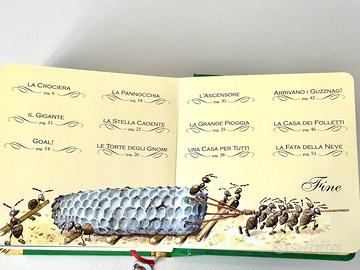 La Crociera
pag. 6
Il Gigante
pag. 11
Goal!
pag. 14
La Pannocchia
pag. 18
La Stella Cadente
pag. 22
Le Torte degli Gnomi
pag. 26
L'Ascensore
pag. 30
La Grande Pioggia
pag. 35
Una Casa per Tutti
pag. 38
Arrivano i Guzznag!
pag. 42
La Casa dei Folletti
pag. 46
La Fata della Neve
pag. 51
Fine